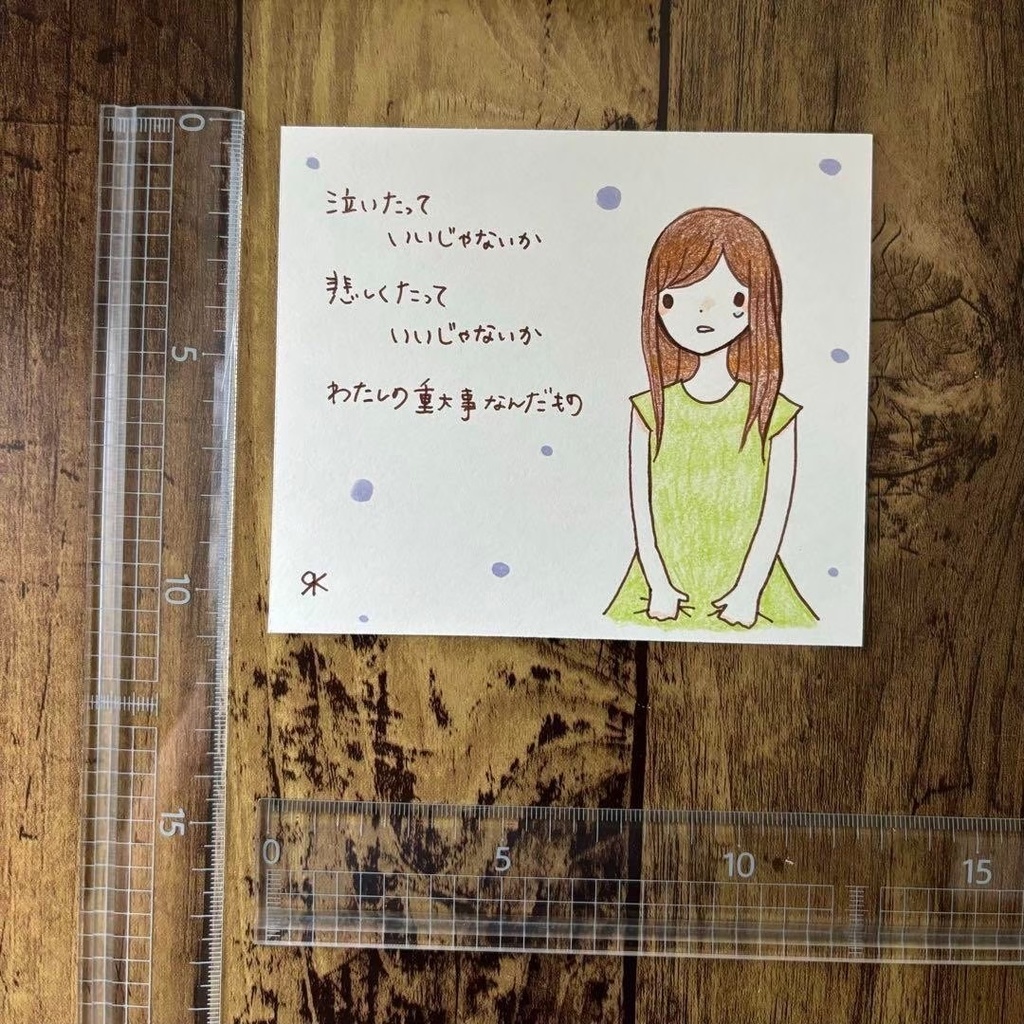 泣いたって
いいじゃないか
悲しくたって
いいじゃないか
わたしの重大事なんだもの
0
5
10
15
0
5
10
15